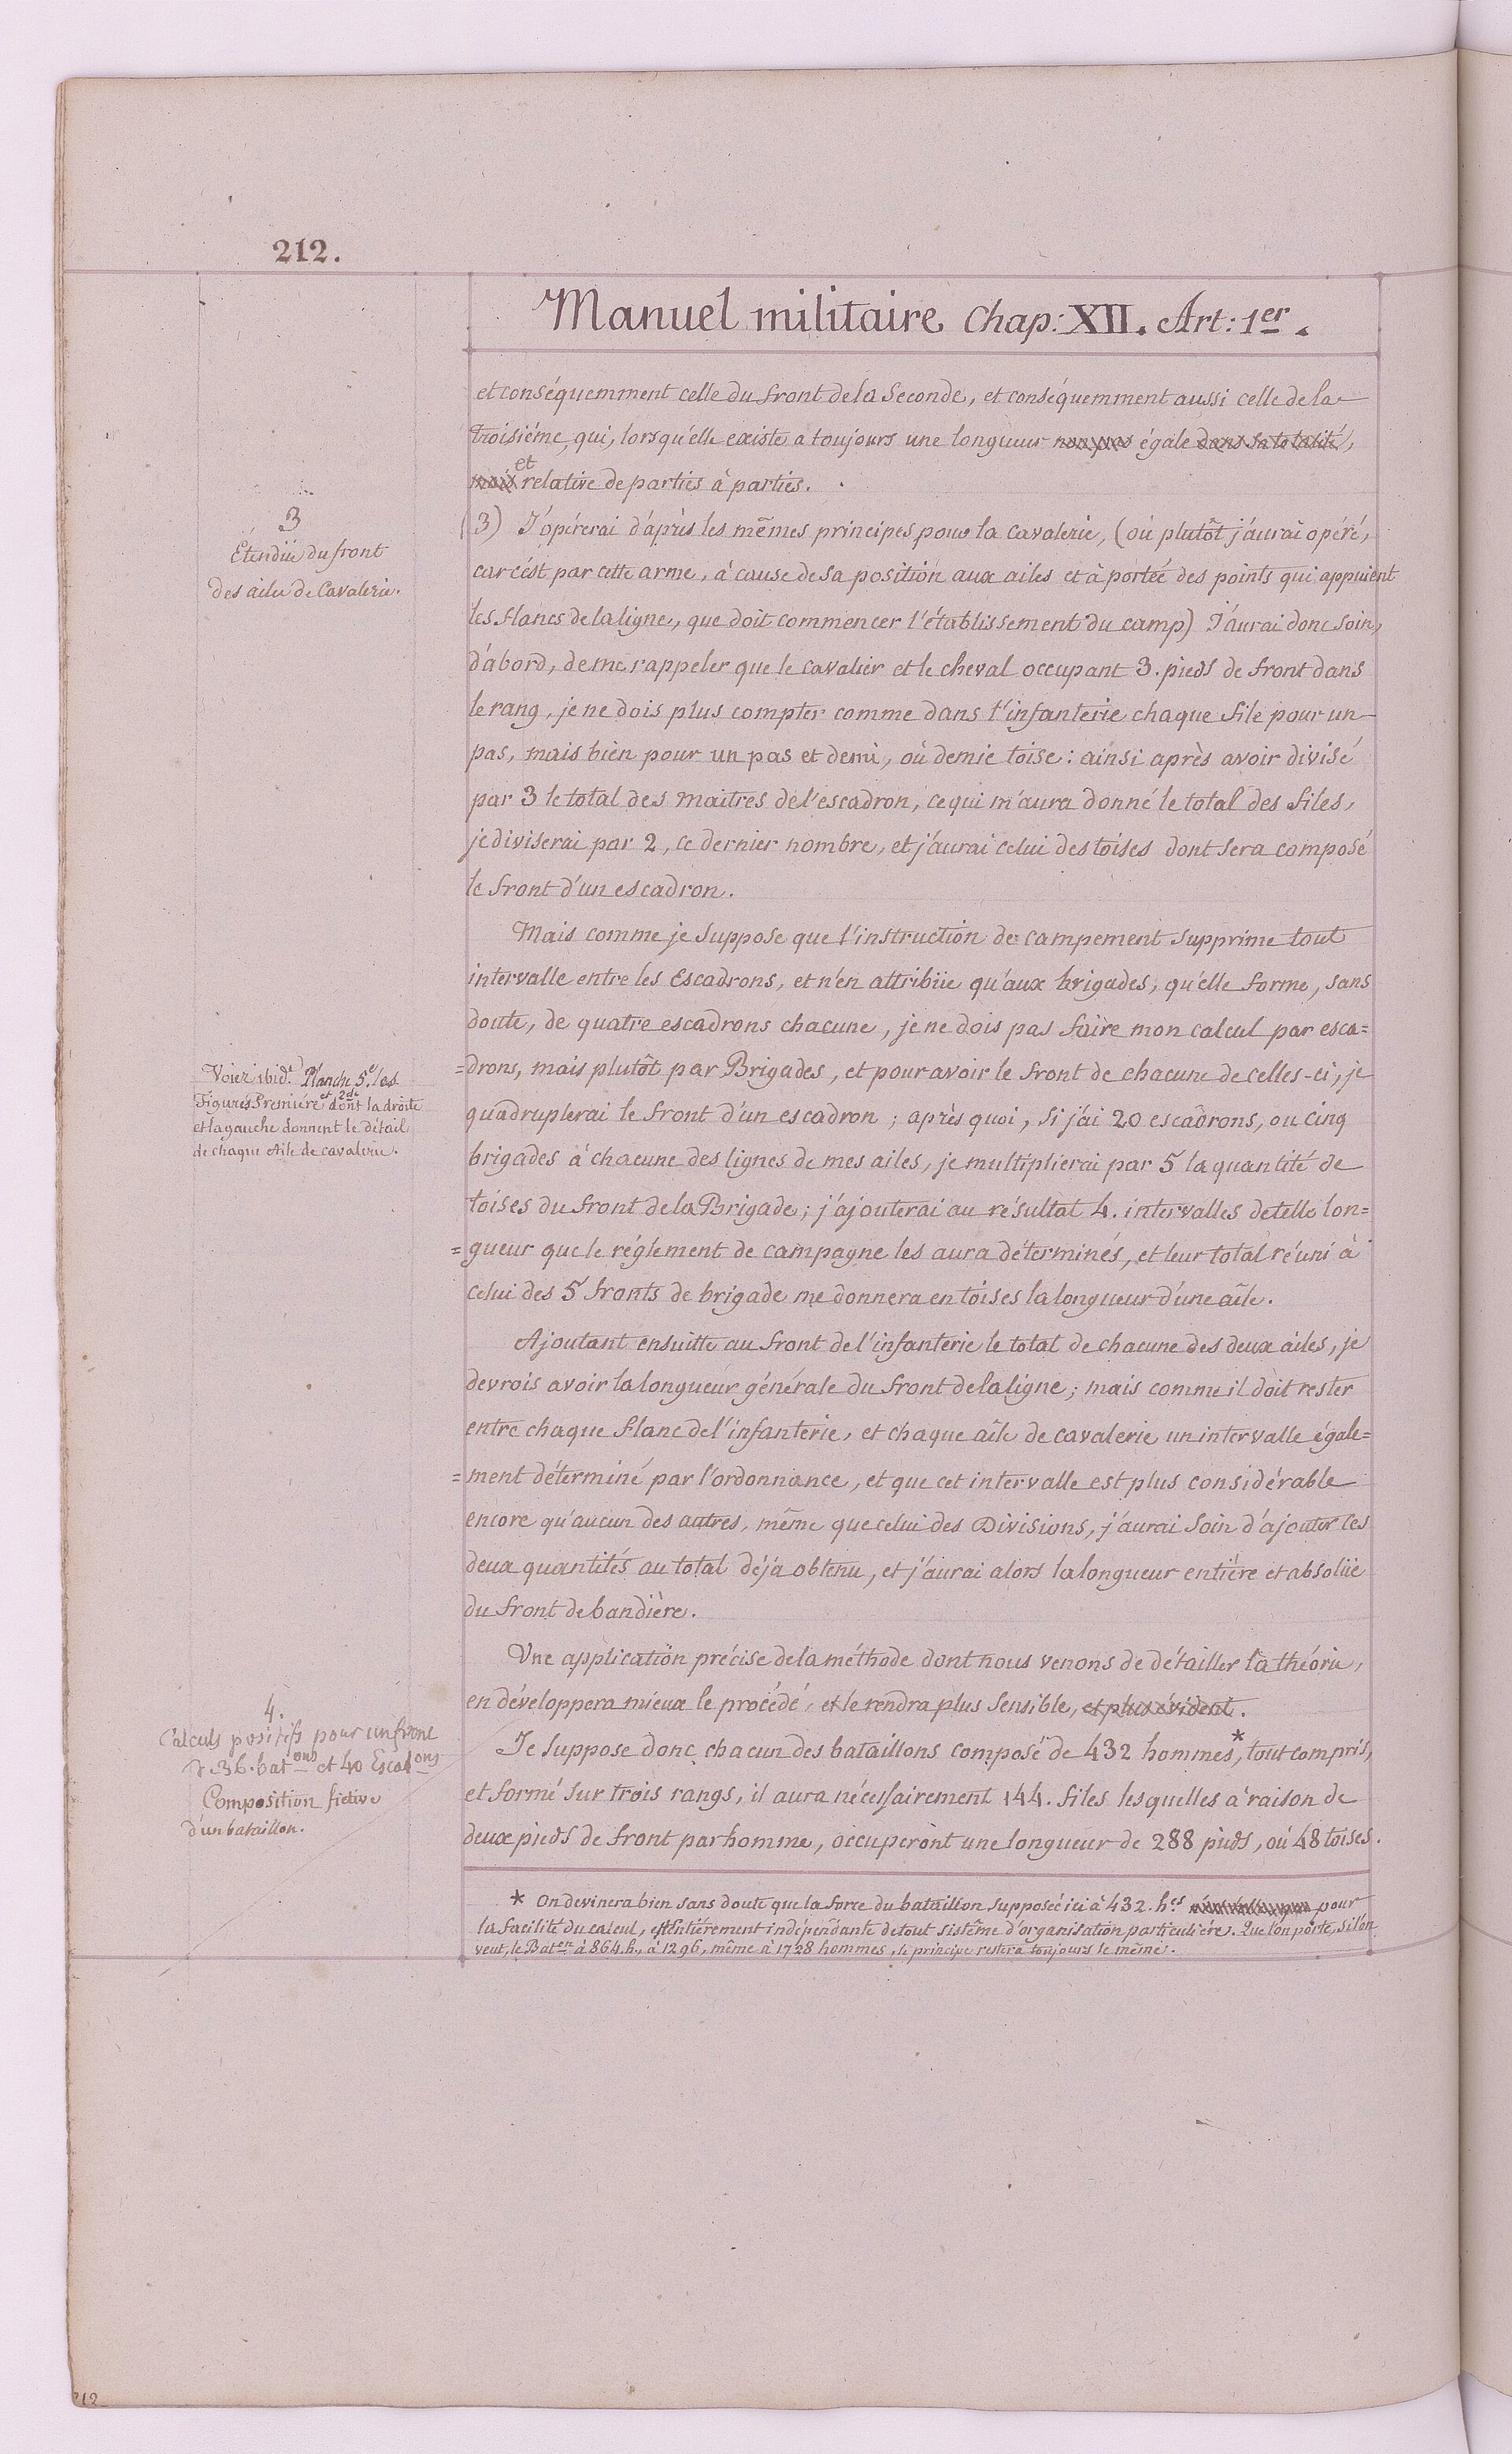 212.
Manuel militaire Chap: XII. Art: 1er.
et conséquemment celle du front de la Seconde, et conséquemment aussi celle de la
troisiéme, qui, lorsqu'elle existe a toujours une longueur non pas égale dans sa totalité,
mais et relative de parties à parties.
3
Étendüe du front
des ailes de Cavalerie.
3) J'opérerai d'après les mêmes principes pour la Cavalerie, (où plutôt j'aurai opéré,
car c'ést par cette arme, à cause de sa position aux ailes et à portée des points qui appuient
les flancs de la ligne, que doit commencer l'établissement du camp) J'aurai donc soin,
d'abord, de me rappeler que le cavalier et le cheval occupant 3. pieds de front dans
le rang, je ne dois plus compter comme dans l'infanterie chaque file pour un
pas, mais bien pour un pas et demi, où demie toise: ainsi après avoir divisé
par 3 le total des maitres de l'escadron, ce qui m'aura donné le total des files,
je diviserai par 2, ce dernier nombre, et j'aurai celui des toises dont sera composé
le front d'un escadron.
Mais comme je suppose que l'instruction de campement supprime tout
intervalle entre les Escadrons, et n'en attribüe qu'aux brigades, qu'elle forme, sans
doute, de quatre escadrons chacune, je ne dois pas faire mon calcul par esca=
=drons, mais plutôt par Brigades, et pour avoir le front de chacune de celles-ci, je
quadruplerai le front d'un escadron; après quoi, si j'ai 20 escadrons, ou cinq
brigades à chacune des lignes de mes ailes, je multiplierai par 5 la quantité de
toises du front de la Brigade; j'ajouterai au résultat 4. intervalles de telle lon=
=gueur que le réglement de campagne les aura déterminés, et leur total réuni à
celui des 5 fronts de brigade me donnera en toises la longueur d'une aîle.
Voiez ibid. Planche 5e les
Figures Premiére et 2de dont la droite
et la gauche donnent le détail
de chaque Aile de cavalerie.
Ajoutant ensuitte au front de l'infanterie le total de chacune des deux aîles, je
devrois avoir la longueur générale du front de la ligne; mais comme il doit rester
entre chaque flanc de l'infanterie, et chaque aîle de cavalerie un intervalle égale=
=ment déterminé par l'ordonnance, et que cet intervalle est plus considérable
encore qu'aucun des autres, même que celui des Divisions, j'aurai soin d'ajouter ces
deux quantités au total déjà obtenu, et j'aurai alors la longueur entière et absolüe
du front de bandière.
Une application précise de la méthode dont nous venons de détailler la théorie,
en développera mieux le procédé, et le rendra plus sensible, et plus évident.
4.
Calculs positifs pour un front
de 36. batons et 40 Escadons
Composition fictive
d'un bataillon.
Je suppose donc chacun des bataillons composé de 432 hommes*, tout compris,
et formé sur trois rangs, il aura nécessairement 144. files lesquelles à raison de
deux pieds de front par homme, occuperont une longueur de 288 pieds, où 48 toises.
* On devinera bien sans doute que la force du bataillon supposée ici à 432. hes pour
la facilité du calcul, est entiérement indépendante de tout sistême d'organisation particulière. Que l'on porte, si l'on
veut, le Baton à 864 h., à 1296, même à 1728 hommes, le principe restera toujours le même.
212